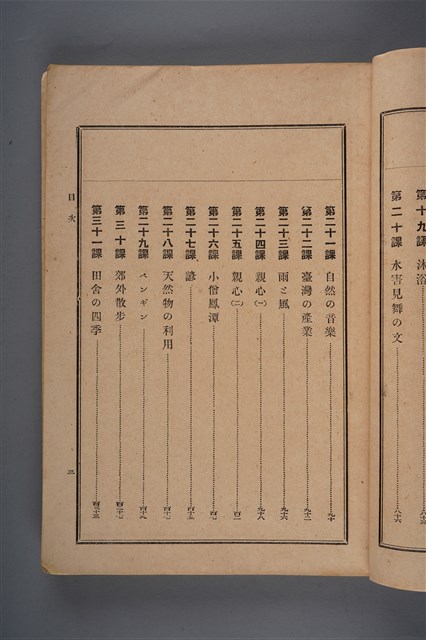 第十九課 沐浴
第二十課 水害見舞の文 八十六
第二十一課 自然の音樂 九十
第二十二課 臺灣の產業 九十二
第二十三課 雨と風 九十六
第二十四課 親心(一) 九十八
第二十五課 親心(二)
第二十六課 小僧鳳潭
第二十七課 諺
第二十八課 天然物の利用
第二十九課 ペンギン
第三十課 郊外散步
第三十一課 田舍の四季
目次
三